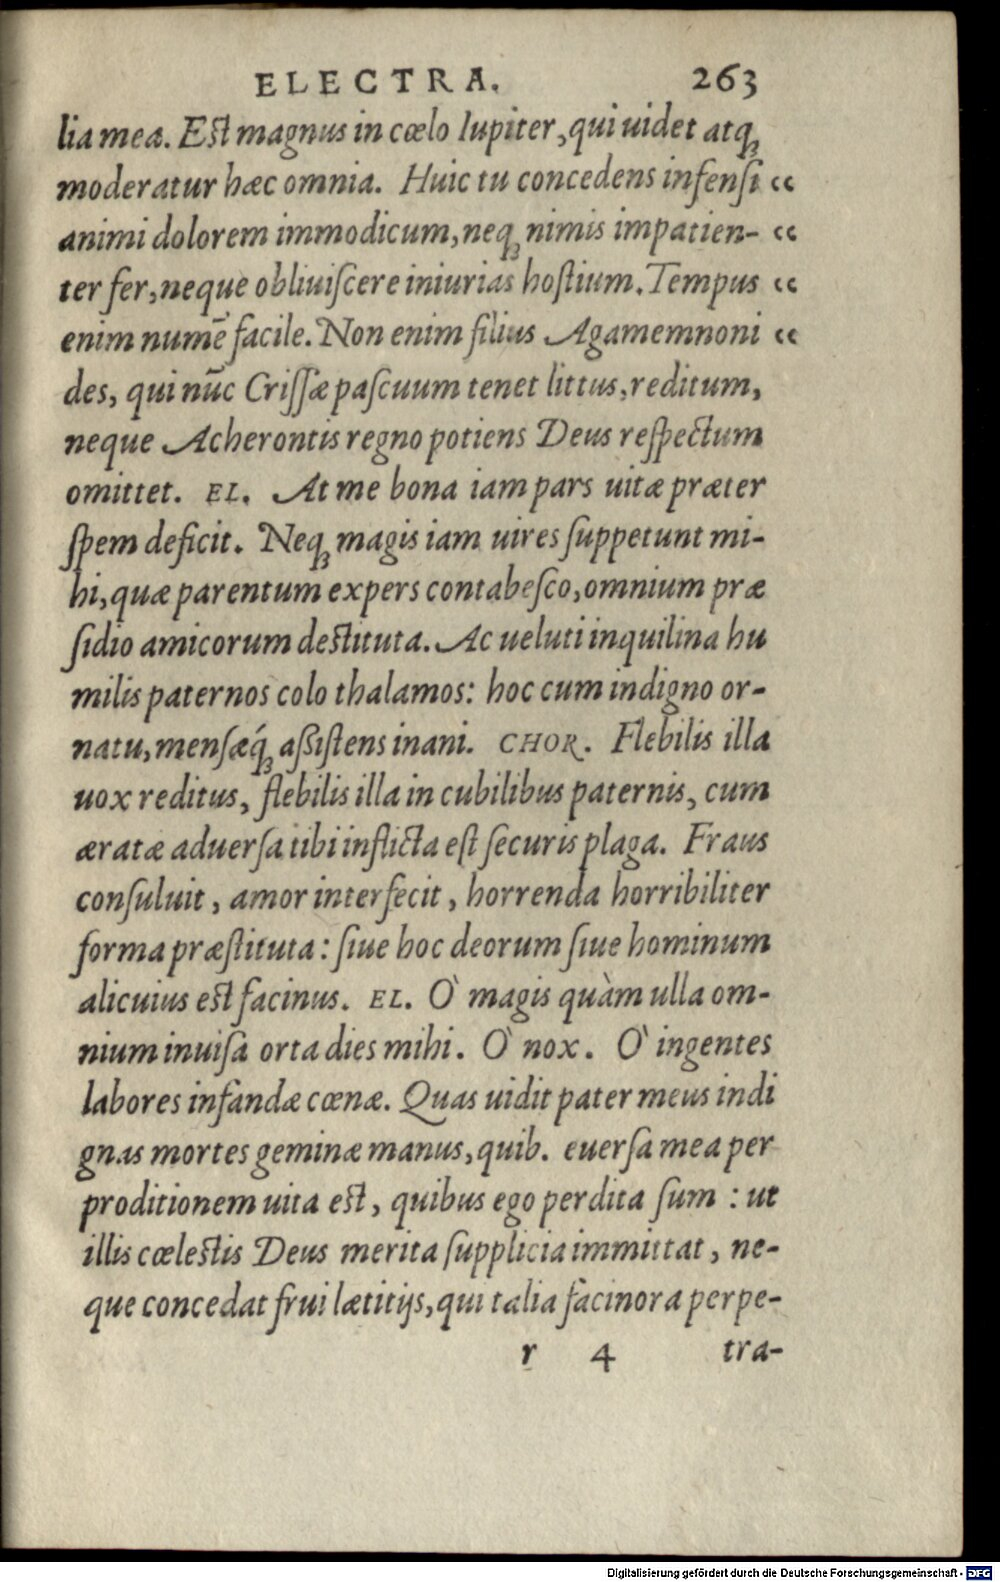 ELECTRA. 263
lia mea. Est magnus in cœlo Iupiter, qui uidet atqꝫ
moderatur hæc omnia. Huic tu concedens infenſi “
animi dolorem immodicum, neqꝫ nimis impatien- “
ter fer, neque obliuiſcere iniurias hoſtium. Tempus “
enim numē facile. Non enim filius Agamemnoni “
des, qui nūc Criſſæ paſcuum tenet littus, reditum,
neque Acherontis regno potiens Deus reſpectum
omittet. EL. At me bona iam pars uitæ præter
ſpem deficit. Neqꝫ magis iam uires ſuppetunt mi-
hi, quæ parentum expers contabeſco, omnium præ
ſidio amicorum destituta. Ac ueluti inquilina hu
milis paternos colo thalamos: hoc cum indigno or-
natu, menſæq́ꝫ aßiſtens inani. CHOR. Flebilis illa
uox reditus, flebilis illa in cubilibus paternis, cum
æratæ aduerſa tibi inflicta eſt ſecuris plaga. Fraus
conſuluit, amor interfecit, horrenda horribiliter
forma præſtituta: ſiue hoc deorum ſiue hominum
alicuius est facinus. EL. Ò magis quàm ulla om-
nium inuiſa orta dies mihi. Ò nox. Ò ingentes
labores infandæ cœnæ. Quas uidit pater meus indi
gnas mortes geminæ manus, quib. euerſa mea per
proditionem uita est, quibus ego perdita ſum: ut
illis cœlestis Deus merita ſupplicia immittat, ne-
que concedat frui lætitijs, qui talia facinora perpe-
r 4 tra-
Digitalisierung gefördert durch die Deutsche Forschungsgemeinschaft - DFG